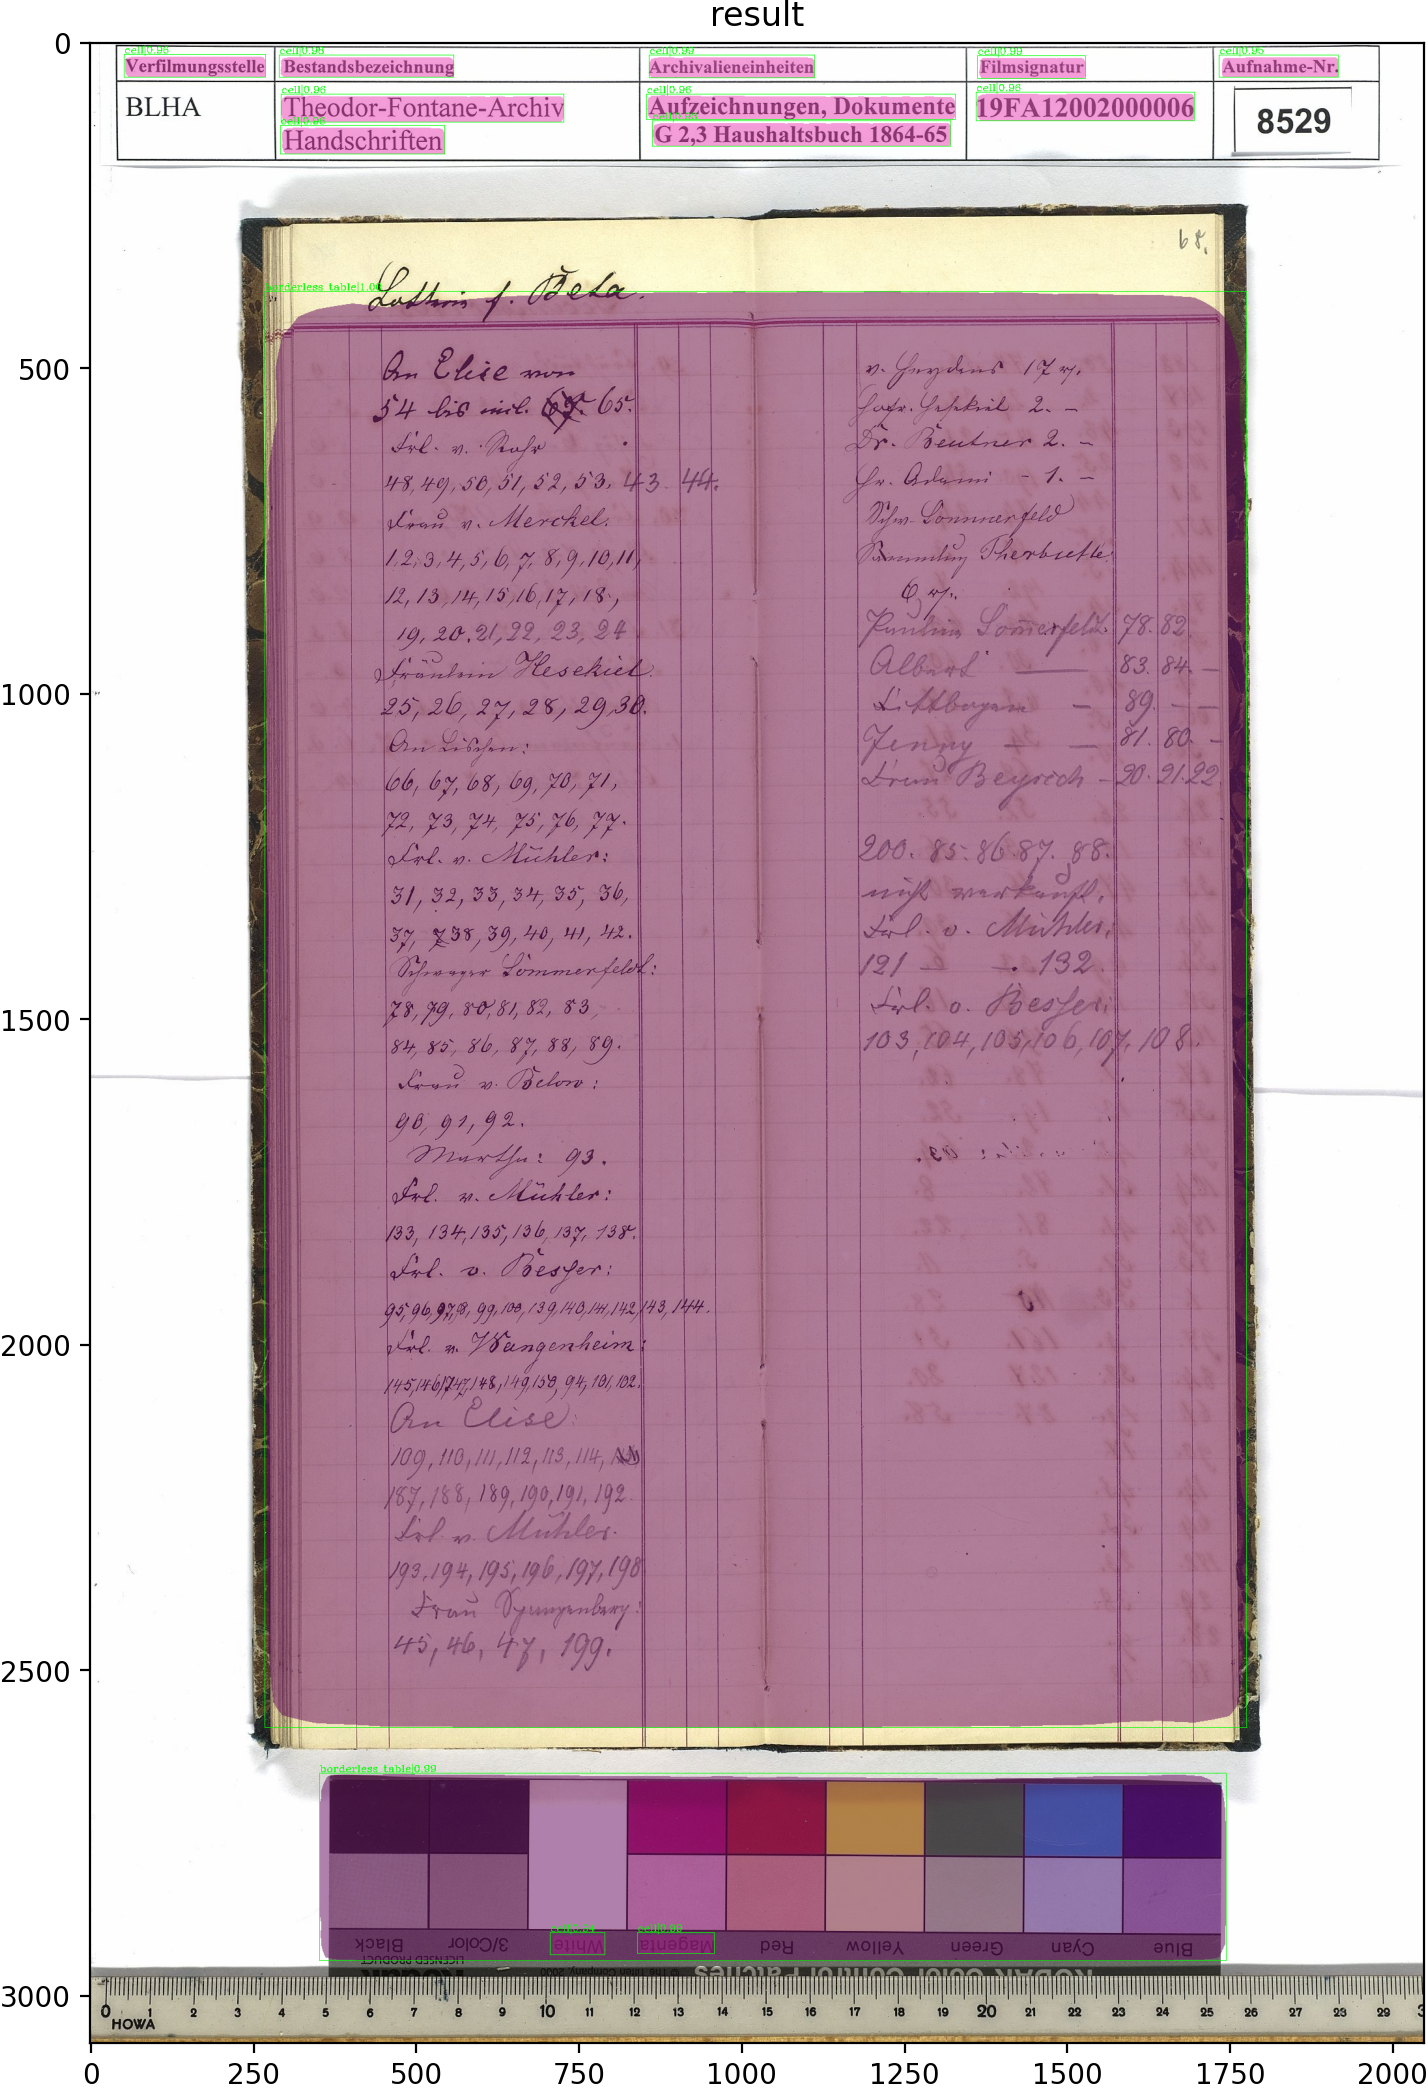 result
Verfilmungsstelle Bestandsbezeichnung Archivalieneinheiten Filmsignatur Aufnahme-Nr.
BLHA Theodor-Fontane-Archiv Aufzeichnungen, Dokumente 19FA12002000006 8529
Handschriften G 2,3 Haushaltsbuch 1864-65
68.
f. Beta.
An Elise von
54 bis incl. 65.
Frl. v. Rohr
48, 49, 50, 51, 52, 53, 43. 44.
Frau v. Merckel.
1, 2, 3, 4, 5, 6, 7, 8, 9, 10, 11,
12, 13, 14, 15, 16, 17, 18,
19, 20, 21, 22, 23, 24
Fräulein Hesekiel.
25, 26, 27, 28, 29, 30.
An Lischen:
66, 67, 68, 69, 70, 71,
72, 73, 74, 75, 76, 77.
Frl. v. Mühler:
31, 32, 33, 34, 35, 36,
37, 38, 39, 40, 41, 42.
Schwager Sommerfeldt:
78, 79, 80, 81, 82, 83,
84, 85, 86, 87, 88, 89.
Frau v. Below:
90, 91, 92.
Martha: 93.
Frl. v. Mühler:
133, 134, 135, 136, 137, 138.
Frl. v. Besser:
95, 96, 97, 8, 99, 100, 139, 140, 141, 142, 143, 144.
Frl. v. Wangenheim:
145, 146, 147, 148, 149, 150, 94, 101, 102.
An Elise:
109, 110, 111, 112, 113, 114,
187, 188, 189, 190, 191, 192.
Frl. v. Mühler.
193, 194, 195, 196, 197, 198
Frau Spangenberg:
45, 46, 47, 199.
v. Heydens 17
Hesekiel 2. –
Dr. Beutner 2. –
Hr. Adami – 1. –
Schw. Sommerfeld
Sammlung
6
Pauline Sommerfeldt. 78. 82.
Albert — 83. 84. –
— 89. — —
Jenny — — 81. 80. –
Frau Beyrich – 20. 21. 22
200. 85. 86 87. 88.
nicht verkauft.
Frl. v. Mühler:
121 – –. 132.
Frl. v. Besser:
103, 104, 105, 106, 107, 108.
Black 3/Color White Magenta Red Yellow Green Cyan Blue
LICENSED PRODUCT © The Tiffen Company, 2000 KODAK Color Control Patches
0 1 2 3 4 5 6 7 8 9 10 11 12 13 14 15 16 17 18 19 20 21 22 23 24 25 26 27 28 29 3
HOWA
borderless_table|1.00
borderless_table|0.99
0 500 1000 1500 2000 2500 3000
0 250 500 750 1000 1250 1500 1750 2000